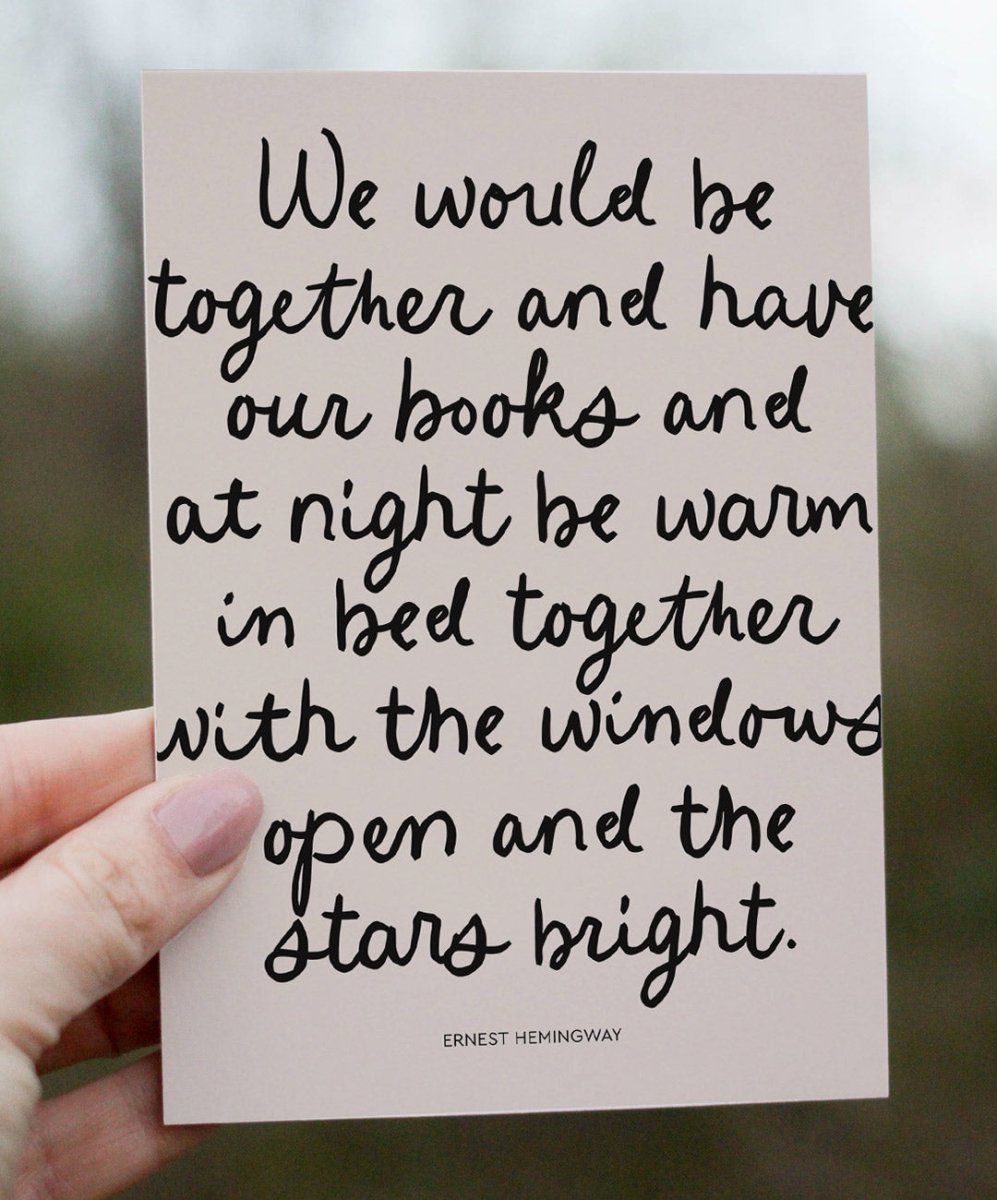 We would be
together and have
our books and
at night be warm
in bed together
with the windows
open and the
stars bright.
ERNEST HEMINGWAY